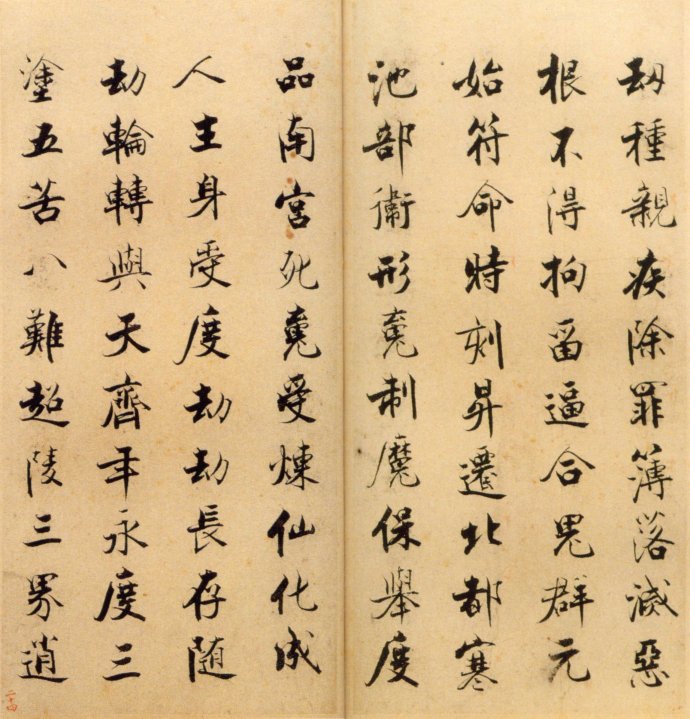 劫種親疾除罪簿落滅惡
根不得拘留逼合鬼群元
始符命時刻昇遷北都寒
池部衛形魂制魔保舉度
品南宮死魂受煉仙化成
人主身受度劫劫長存随
劫輪轉與天齊年永度三
塗五苦八難超陵三界逍
二十四